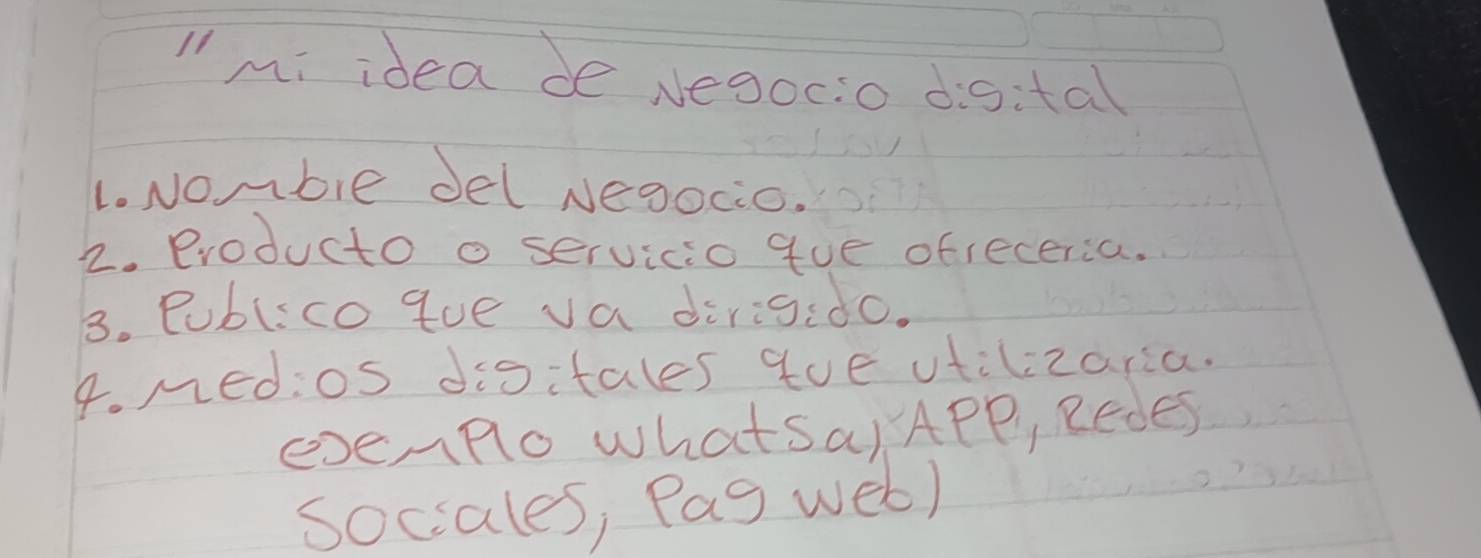 "Mi idea de Negocio digital
1. Nombre del Negocio.
2. Producto o servicio que ofreceria.
3. Publico que va dirigido.
4. Medios digitales que utilizaria.
ejemplo whatsa, APP, Redes
sociales, Pag web)